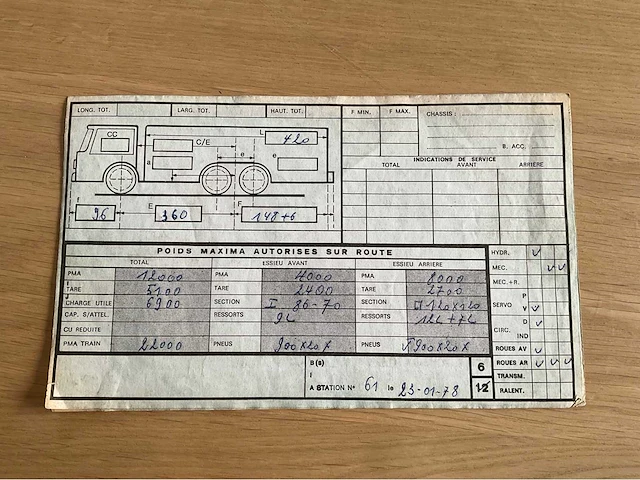 LONG. TOT. LARG. TOT. HAUT. TOT. F MIN. F MAX. CHASSIS :
CC L 420
C/E B. ACC.
INDICATIONS DE SERVICE
a e e TOTAL AVANT ARRIÈRE
f E F
96 360 148+6
POIDS MAXIMA AUTORISES SUR ROUTE HYDR.
TOTAL ESSIEU AVANT ESSIEU ARRIERE MEC.
PMA 12000 PMA 4000 PMA 8000 MEC.+R.
TARE 5100 TARE 2400 TARE 2700 P
CHARGE UTILE 6900 SECTION I 86-70 SECTION 120x120 SERVO V
CAP. S/ATTEL. RESSORTS 9L RESSORTS 12L+7L D
CU REDUITE CIRC. IND
PMA TRAIN 22000 PNEUS 900x20x PNEUS 900x20x ROUES AV
ROUES AR
B(s) 6 TRANSM.
I
A STATION N° 61 le 23-01-78 12 RALENT.